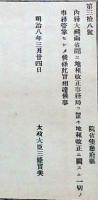 第三十八号
院省使廳府縣
内務大藏両省間ニ地租改正事務局ヲ置キ地租改正ニ關スル一切ノ
事務管掌セシメ候條此旨相達候事
明治八年三月廿四日
太政大臣三條實美